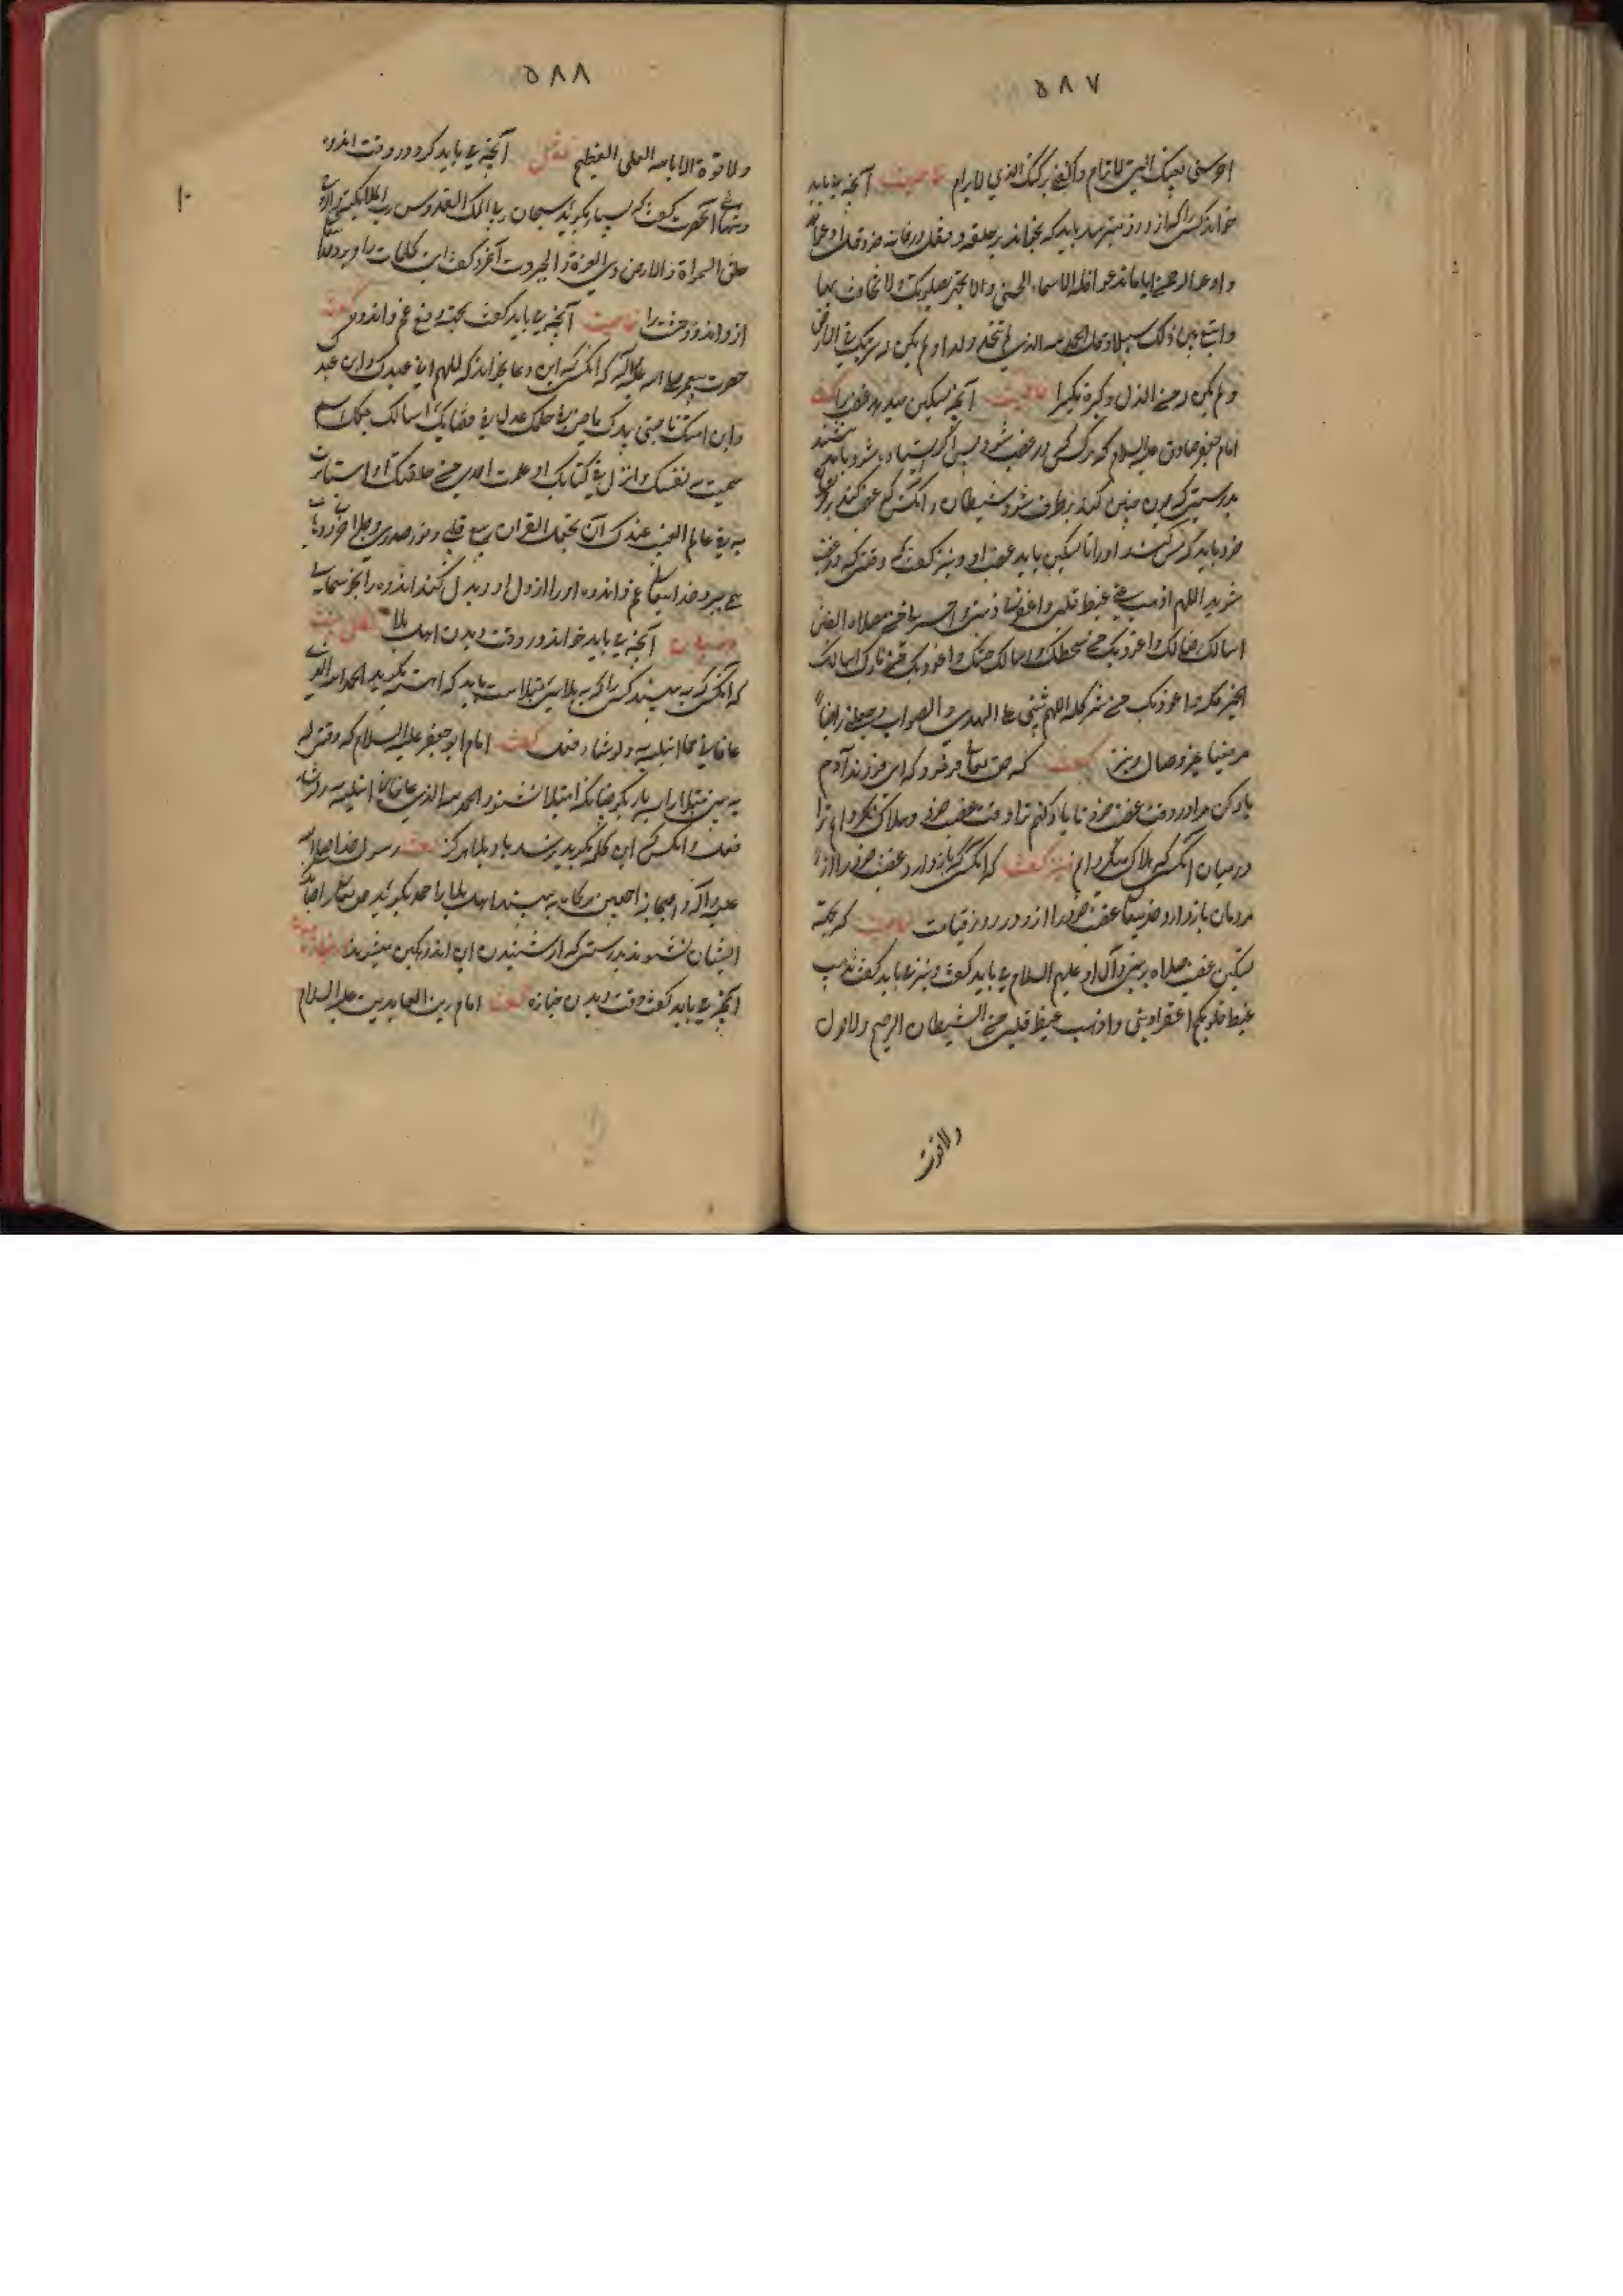 ۵۸۷
احرسنی بعینک التی لاتنام واکنفنی برکنک الذی لایرام خاصیت آنچه می باید
خواند کسی را که از دزد میترسد باید که بخواند بر حلقه و قفل در خانه خود قل ادعوا الله
او ادعوا الرحمن ایاما تدعوا فله الاسماء الحسنی ولا تجهر بصلوتک ولا تخافت بها
وابتغ بین ذلک سبیلا وقل الحمد لله الذی لم یتخذ ولدا ولم یکن له شریک فی الملک
ولم یکن له ولی من الذل وکبره تکبیرا خاصیت آنچه تسکین میدهد غضب را گفت
امام جعفر صادق علیه السلام که هر کس در غضب شود پس اگر ایستاده باشد باید بنشیند
بدرستی که چون چنین کند برطرف شود شیطان و آنکس که غضب کند بر
خود باید که مس کند او را تا تسکین یابد غضب او و نیز گفت که وقتی که در غضب
شوید اللهم اذهب عنی غیظ قلبی واغفر لی ذنبی واجرنی من مضلات الفتن
اسالک رضاک واعوذ بک من سخطک واسالک جنتک واعوذ بک من نارک اسالک
الخیر کله واعوذ بک من شر کله اللهم ثبتنی علی الهدی والصواب واجعلنی راضیا
مرضیا غیر ضال ونیز گفت که حق تعالی فرمود که ای فرزند آدم
یاد کن مرا در وقت غضب خود تا یاد کنم ترا وقت غضب خود و هلاک نگردانم ترا
در میان آنکس که هلاک میگردانم نیز گفت که آنکس که باز دارد غضب خود را از
مردمان باز دارد خدیتعالی غضب خود را از او در روز قیامت خاصیت که بجهة
تسکین غضب صلاه بر نبی و آل او علیهم السلام می باید گفت و نیز می باید گفت یذهب
غیظ قلوبکم اغفر لی ذنبی واذهب غیظ قلبی من الشیطان الرجیم ولا حول
ولا قوت
۵۸۸
۱۰
ولا قوة الا بالله العلی العظیم فصل آنچه می باید کرد در وقت اندوه
وتنهائی آنحضرت گفت که بسیار بگوئید سبحان ربی الملک القدوس رب الملائکة والروح
خالق السموات والارض ذی العزة والجبروت آنمرد گفت این کلمات را و برد خدا
از او اندوه و وحشت را خاصیت آنچه می باید گفت بجهة دفع غم و اندوه گفت
حضرت پیغمبر صلی الله علیه وآله که آنکس که این دعا بخواند که اللهم انی عبدک وابن عبدک
وابن امتک ناصیتی بیدک ماض فی حکمک عدل فی قضاءک اسالک بکل اسم
سمیت به نفسک وانزلته فی کتابک او علمته احدا من خلقک او استاثرت
به فی علم الغیب عندک ان تجعل القران ربیع قلبی ونور صدری وجلاء حزنی
می برد خدایتعالی غم و اندوه او را از دل او و بدل کند اندوه را بخوشحالی
آنچه می باید خواند در وقت دیدن اهل بلا
که آنکس که به بیند کسی را که به بلائی مبتلاست باید که آهسته بگوید الحمد لله الذی
عافانی مما ابتلیه ولو شاء فعل گفت امام ابو جعفر علیه السلام که وقتی که
به بینی مبتلا را سه بار بگو چنانکه مبتلا نشنود الحمد لله الذی عافانی مما ابتلیه ولو شاء
فعل وآنکس که این کلمه بگوید نرسد باو بلا هرگز گفت رسول خدا صلی الله
علیه وآله واصحابه اجمعین هرگاه به بینید اهل بلا را حمد بگوئید حق تعالی را چنانکه
ایشان نشنوند بدرستی که از شنیدن این اندوهگین میشوند
آنچه می باید گفت وقت دیدن جنازه گفت امام زین العابدین علیه السلام